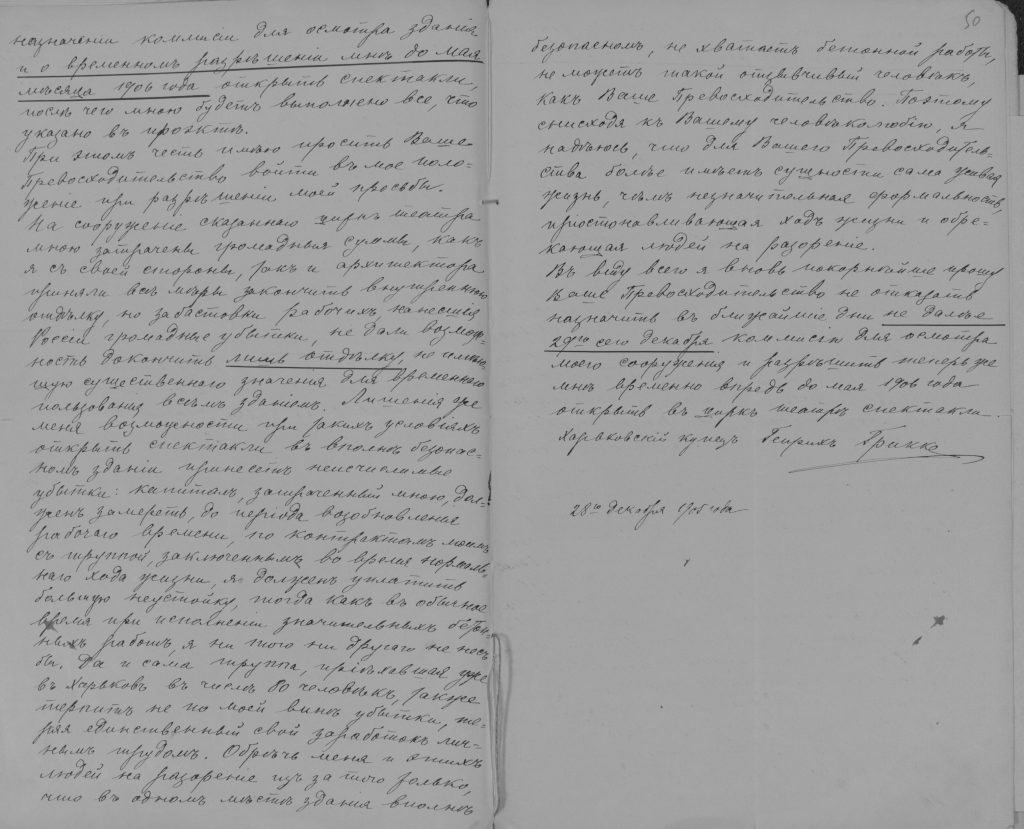 назначеніи коммисіи для осмотра зданія
и о временномъ разрѣшеніи мнѣ до мая
мѣсяца 1906 года открыть спектакли,
послѣ чего мною будетъ выполнено все, что
указано въ проэктѣ.
При этомъ честь имѣю просить Ваше
Превосходительство войти въ мое поло-
женіе при разрѣшеніи моей просьбы.
На сооруженіе сказаннаго цирка театра
мною затрачены громадныя суммы, какъ
я съ своей стороны, такъ и архитектора
приняли всѣ мѣры закончить внутреннюю
отдѣлку, но забастовки рабочихъ нанесшія
Россіи громадные убытки, не дали возмож-
ность докончить лишь отдѣлку, не имѣю-
щую существеннаго значенія для временнаго
пользованія всѣмъ зданіемъ. Лишенія же
меня возможности при такихъ условіяхъ
открыть спектакли въ вполнѣ безопас-
номъ зданіи принесетъ неисчислимые
убытки: капиталъ, затраченный мною, дол-
женъ замереть, до періода возобновленія
рабочаго времени, по контрактамъ моимъ
съ труппой, заключеннымъ во время нормаль-
наго хода жизни, я долженъ уплатить
большую неустойку, тогда какъ въ обычное
время при исполненіи значительныхъ бетон-
ныхъ работъ, я ни того ни другаго не несъ
бы. Да и сама труппа, пріѣхавшая уже
въ Харьковъ въ числѣ 80 человѣкъ, также
терпитъ не по моей винѣ убытки, те-
ряя единственный свой заработокъ лич-
нымъ трудомъ. Обречь меня и этихъ
людей на разореніе изъ за того только,
что въ одномъ мѣстѣ зданія вполнѣ
50
безопасномъ, не хватаетъ бетонной работы,
не можетъ такой отзывчивый человѣкъ,
какъ Ваше Превосходительство. Поэтому
снисходя къ Вашему человѣколюбію, я
надѣюсь, что для Вашего Превосходитель-
ства болѣе имѣетъ сущности сама живая
жизнь, чѣмъ незначительная формальность,
пріостонавливающая ходъ жизни и обре-
кающая людей на разореніе.
Въ виду всего я вновь покорнѣйше прошу
Ваше Превосходительство не отказать
назначить въ ближайшіе дни не далѣе
29го сего декабря коммисію для осмотра
моего сооруженія и разрѣшить теперь же
мнѣ временно впредь до мая 1906 года
открыть въ циркѣ театрѣ спектакли.
Харьковскій купецъ Генрихъ Грикке
28го декабря 1905 года